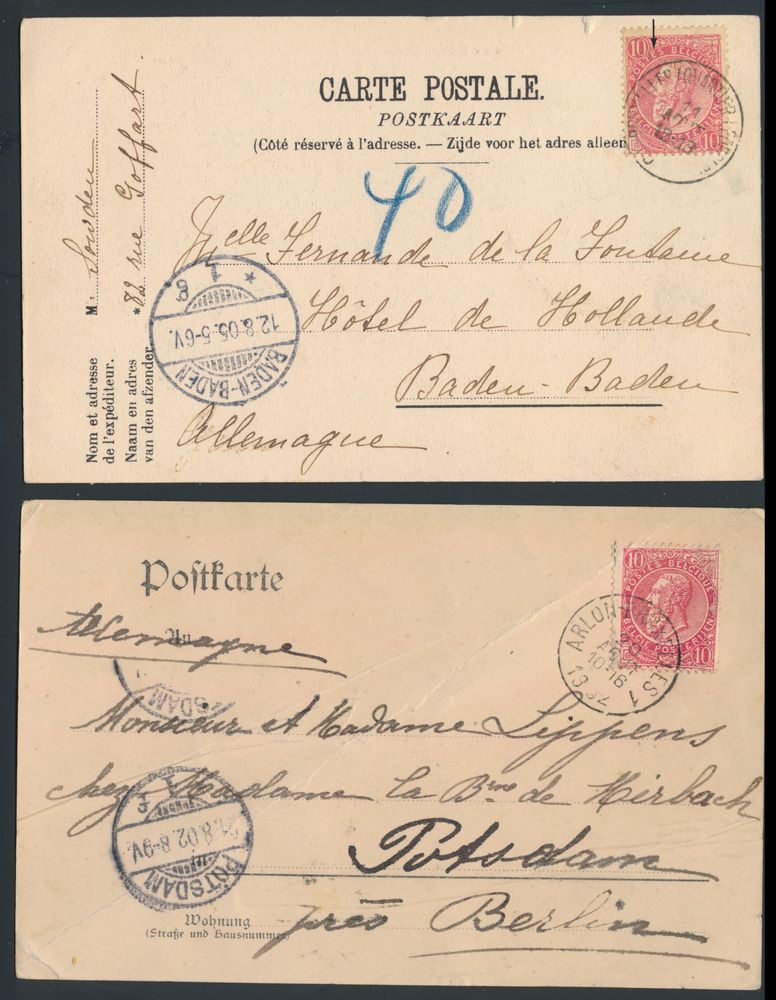 CARTE POSTALE.
POSTKAART
(Côté réservé à l'adresse. — Zijde voor het adres alleen
10
POSTES BELGIQUE
10
11
12-13
40
Nom et adresse
de l'expéditeur.
Naam en adres
van den afzender
M: Sowden
*82 rue Goffart.
Melle Fernande de la Fontaine
Hôtel de Hollande
Baden-Baden
Allemagne
* 1 g
12.8.05.5-6V.
BADEN-BADEN
10
POSTES BELGIQUE
BELGIE POSTERIJEN
10
ARLON-
20
10-16
Postkarte
An
Allemagne
Monsieur et Madame Lippens
chez Madame la Bnne de Mirbach
Potsdam
près Berlin
SDAM
1
21.8.02.8-9V.
POTSDAM
Wohnung
(Straße und Hausnummer)